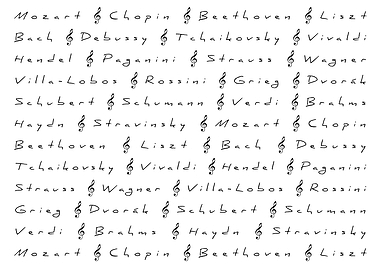 Mozart 𝄞 Chopin 𝄞 Beethoven 𝄞 Liszt
Bach 𝄞 Debussy 𝄞 Tchaikovsky 𝄞 Vivaldi
Hendel 𝄞 Paganini 𝄞 Strauss 𝄞 Wagner
Villa-Lobos 𝄞 Rossini 𝄞 Grieg 𝄞 Dvorák
Schubert 𝄞 Schumann 𝄞 Verdi 𝄞 Brahms
Haydn 𝄞 Stravinsky 𝄞 Mozart 𝄞 Chopin
Beethoven 𝄞 Liszt 𝄞 Bach 𝄞 Debussy
Tchaikovsky 𝄞 Vivaldi 𝄞 Hendel 𝄞 Paganini
Strauss 𝄞 Wagner 𝄞 Villa-Lobos 𝄞 Rossini
Grieg 𝄞 Dvorák 𝄞 Schubert 𝄞 Schumann
Verdi 𝄞 Brahms 𝄞 Haydn 𝄞 Stravinsky
Mozart 𝄞 Chopin 𝄞 Beethoven 𝄞 Liszt